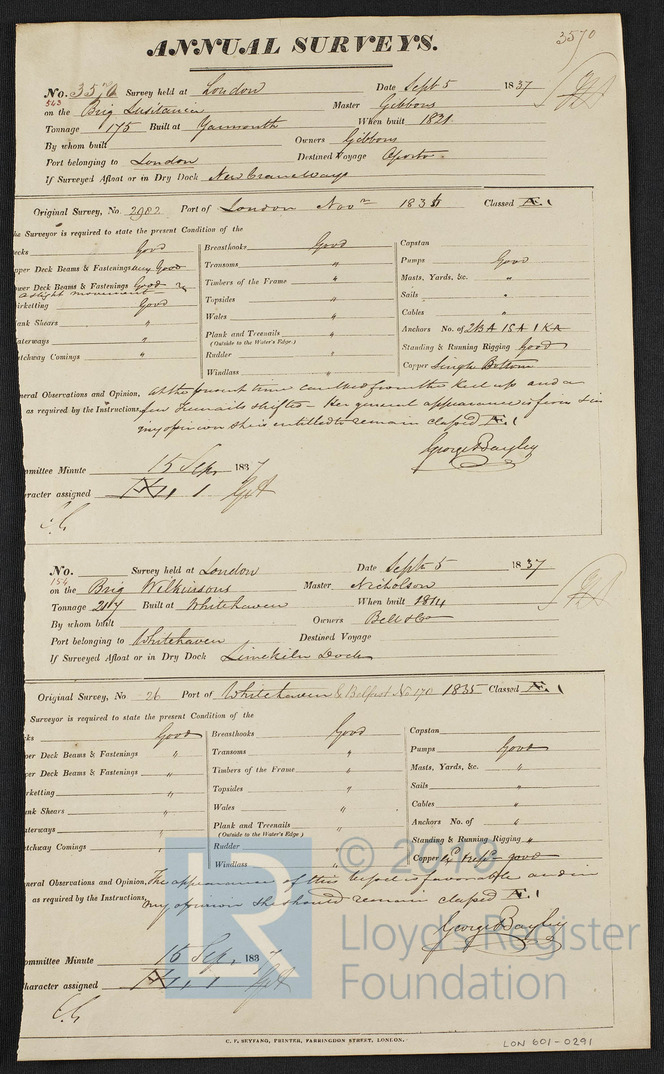 3570
ANNUAL SURVEYS.
No. 3570 Survey held at London Date Sept 5 1837
543
on the Brig Lusitania Master Gibbons
Tonnage 175 Built at Yarmouth When built 1821
By whom built Owners Gibbons
Port belonging to London Destined Voyage Oporto
If Surveyed Afloat or in Dry Dock New Crane Ways
Original Survey, No. 2982 Port of London Novr 1836 Classed Æ. 1
he Surveyor is required to state the present Condition of the
ecks Good Breasthooks Good Capstan
pper Deck Beams & Fastenings very Good Transoms " Pumps Good
wer Deck Beams & Fastenings Good Timbers of the Frame " Masts, Yards, &c. "
a slight movement
irketting Good Topsides " Sails "
lank Shears " Wales " Cables "
aterways " Plank and Treenails " Anchors No. of 2 BA 1 SA 1 KA
(Outside to the Water's Edge.)
atchway Comings " Rudder " Standing & Running Rigging Good
Windlass " Copper Single Bottom
neral Observations and Opinion, At the present time caulked from the keel up and a
as required by the Instructions, few Treenails shifted - Her general appearance is firm & in
my opinion she is entitled to remain classed Æ. 1
George Bayley
mmittee Minute 15 Sep 1837
racter assigned Æ 1
No. Survey held at London Date Sept 5 1837
154
on the Brig Wilkinsons Master Nicholson
Tonnage 217 Built at Whitehaven When built 1814
By whom built Owners Bell & Co
Port belonging to Whitehaven Destined Voyage
If Surveyed Afloat or in Dry Dock Limekiln Dock
Original Survey, No 26 Port of Whitehaven & Belfast No 170 1835 Classed Æ. 1
Surveyor is required to state the present Condition of the
cks Good Breasthooks Good Capstan
per Deck Beams & Fastenings " Transoms " Pumps Good
wer Deck Beams & Fastenings " Timbers of the Frame " Masts, Yards, &c. "
rketting " Topsides " Sails "
ank Shears " Wales " Cables "
aterways " Plank and Treenails " Anchors No. of "
(Outside to the Water's Edge)
atchway Comings " Rudder Standing & Running Rigging "
Windlass " Copper good
neral Observations and Opinion, The appearance of this Vessel is favorable and in
as required by the Instructions, my opinion she should remain classed Æ. 1
George Bayley
ommittee Minute 15 Sep. 1837
haracter assigned Æ 1
C. F. SEYFANG, PRINTER, FARRINGDON STREET, LONDON.
LON 601-0291
LR
© 2019
Lloyd's Register
Foundation